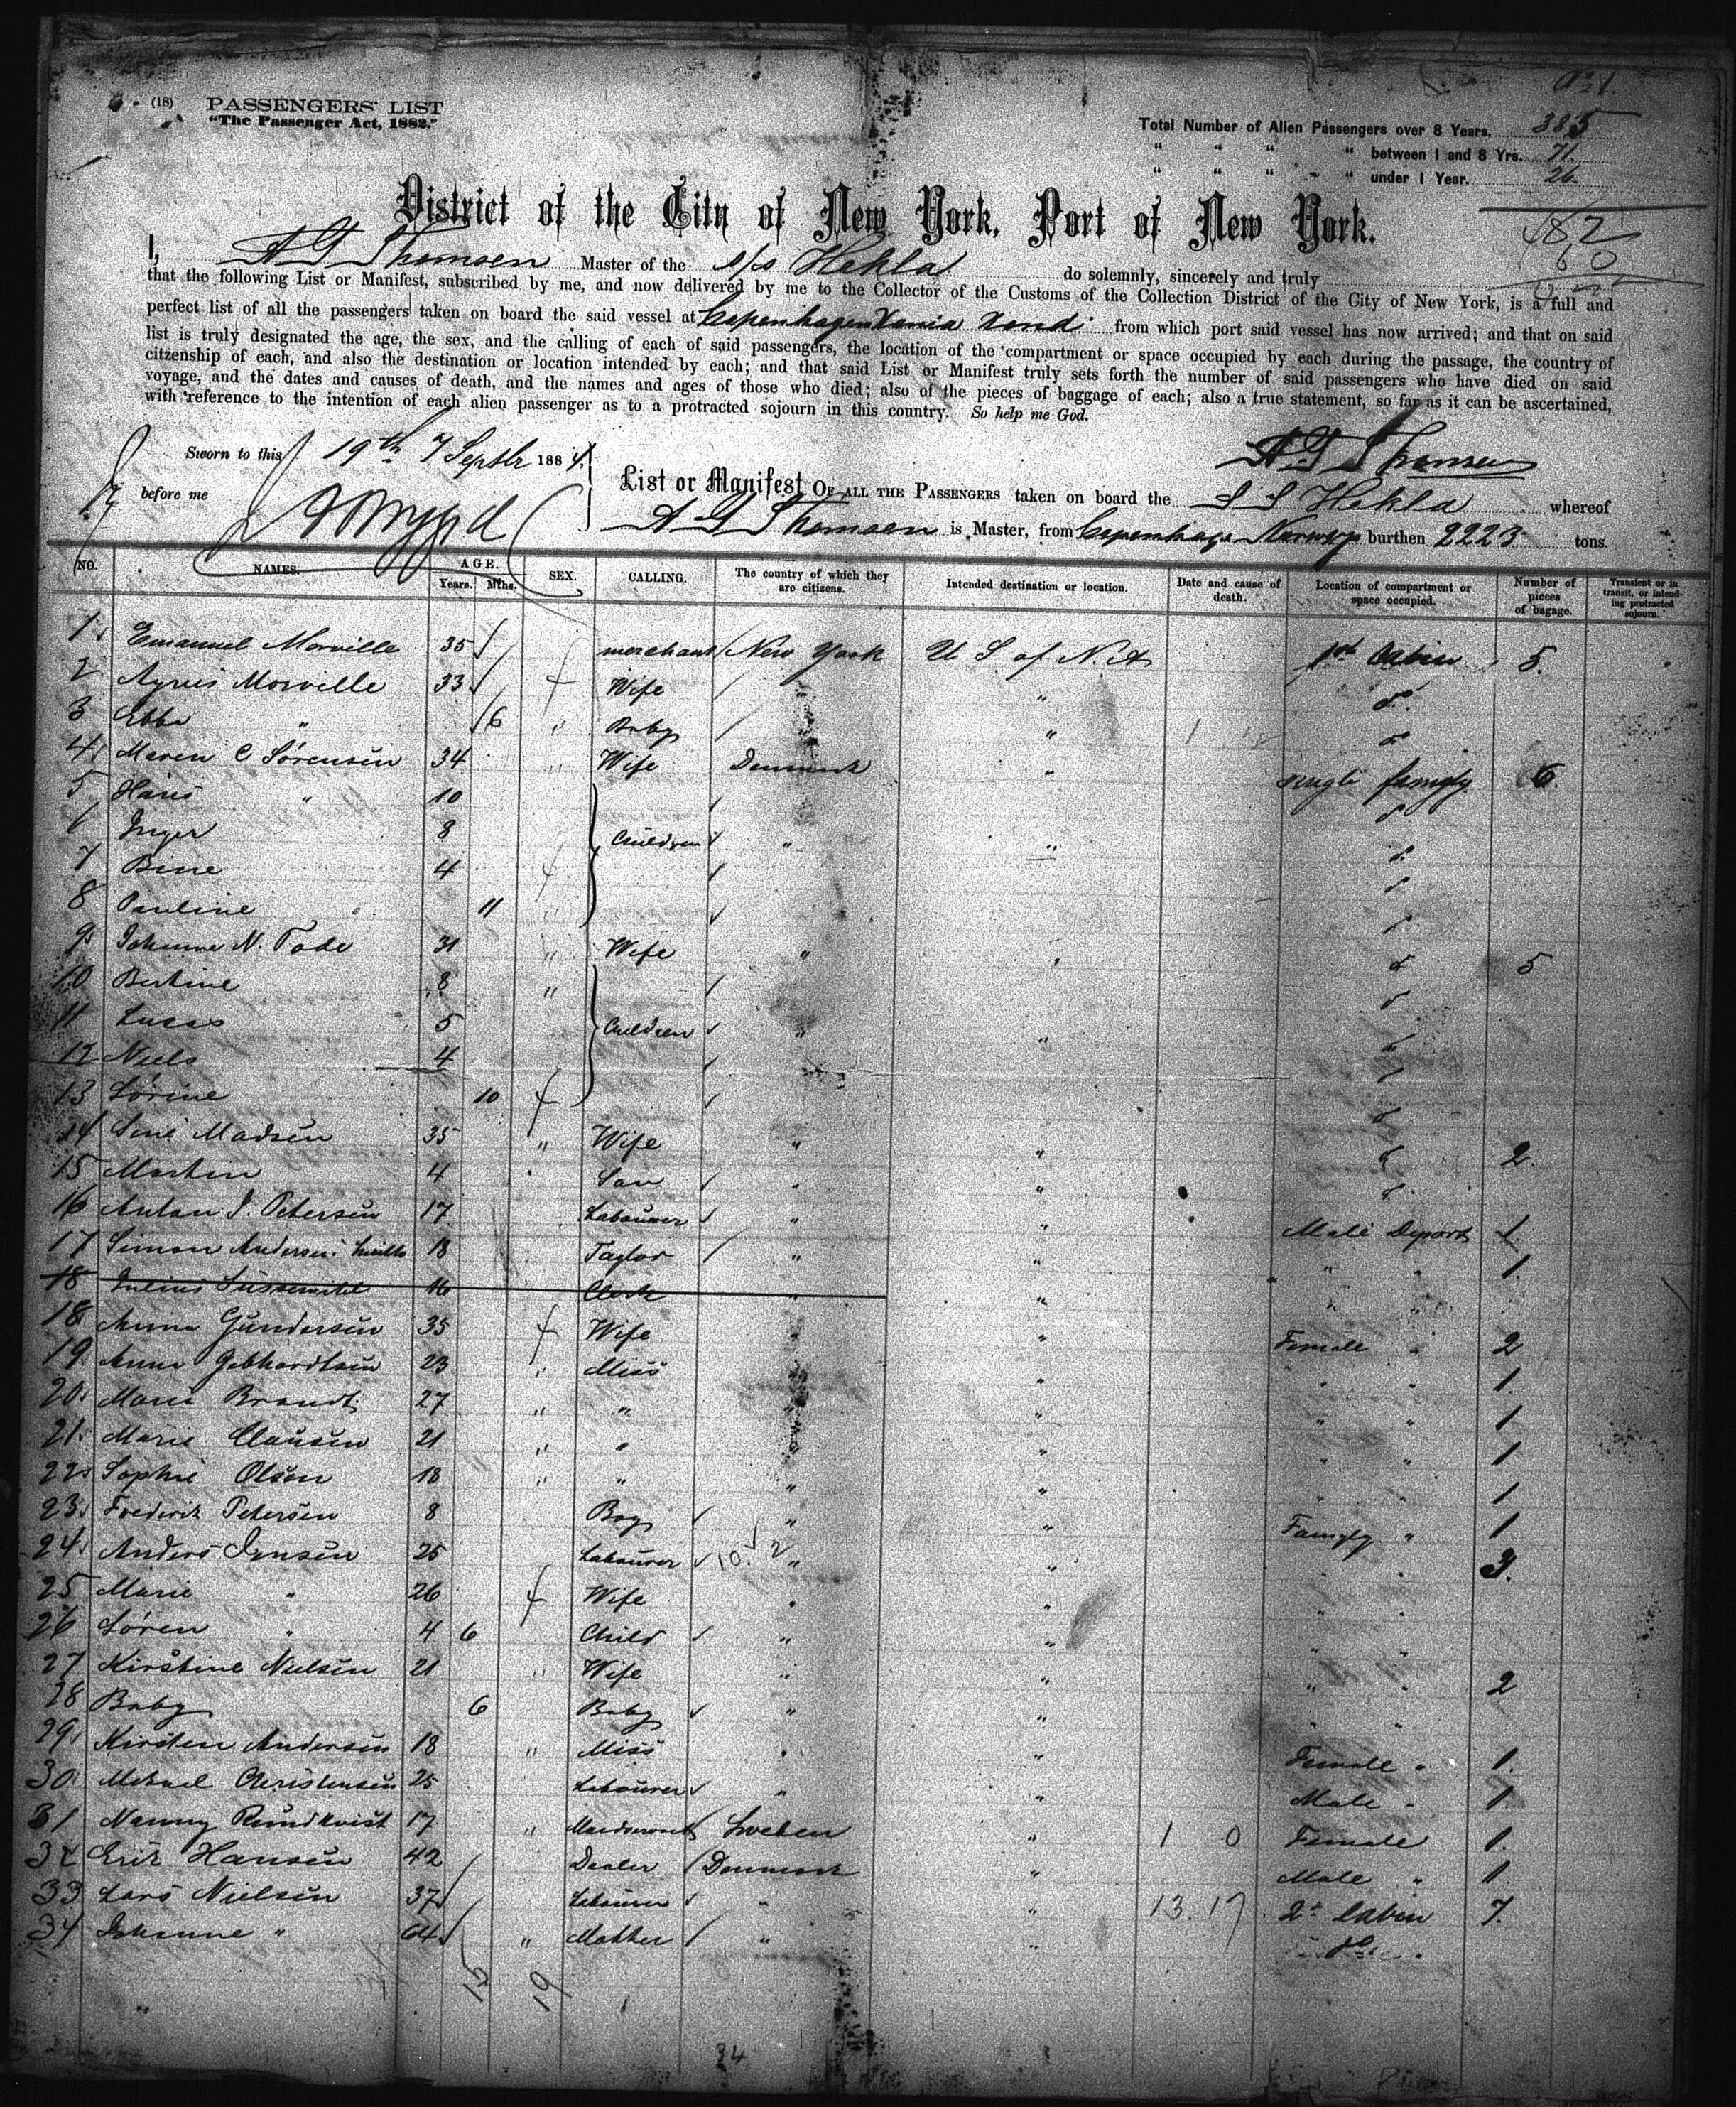 (18) PASSENGERS' LIST
"The Passenger Act, 1882."
Total Number of Alien Passengers over 8 Years. 385
" " " " between 1 and 8 Yrs. 71.
" " " " under 1 Year. 26.
482
District of the City of New York, Port of New York.
I, A G Thomsen Master of the s/s Hekla do solemnly, sincerely and truly
that the following List or Manifest, subscribed by me, and now delivered by me to the Collector of the Customs of the Collection District of the City of New York, is a full and
perfect list of all the passengers taken on board the said vessel at Copenhagen from which port said vessel has now arrived; and that on said
list is truly designated the age, the sex, and the calling of each of said passengers, the location of the compartment or space occupied by each during the passage, the country of
citzenship of each, and also the destination or location intended by each; and that said List or Manifest truly sets forth the number of said passengers who have died on said
voyage, and the dates and causes of death, and the names and ages of those who died; also of the pieces of baggage of each; also a true statement, so far as it can be ascertained,
with reference to the intention of each alien passenger as to a protracted sojourn in this country. So help me God.
A G Thomsen
Sworn to this 19th Septbr 1884
before me
List or Manifest OF ALL THE PASSENGERS taken on board the S S Hekla whereof
A G Thomsen is Master, from Copenhagen burthen 2223 tons.
NO. NAMES. AGE. Years. Mths. SEX. CALLING. The country of which they are citizens. Intended destination or location. Date and cause of death. Location of compartment or space occupied. Number of pieces of bagage. Transient or in transit, or intending protracted sojourn.
1 Emanuel Morville 35 merchant New York U S of N. A 1st Cabin 5.
2 Agnes Morville 33 f Wife " " do.
3 Ebba " 6 " Baby " do
4 Maren C Sørensen 34 " Wife Denmark " family 6.
5 Hans " 10 do
6 Inger 8 Children " " do
7 Bine 4 f do
8 Pauline 11 " do
9 Johanne N. Tode 31 " Wife " " do 5
10 Bertine 8 " do
11 Lucas 5 Children " " do
12 Niels 4 do
13 Sørine 10 f do
14 Sine Madsen 35 " Wife " " do 2.
15 Morten 4 Son " " do
16 Anton J. Petersen 17 Labourer " " Male Depart 1.
17 Simon Andersen 18 Taylor " " " " 1.
18 Julius 16 Clerk " " " "
18 Anna Gundersen 35 f Wife " Female " 2
19 Anna Gebhardtsen 23 " Miss " " " " 1.
20 Marie Brandt 27 " " " " " " 1
21 Marie Clausen 21 " " " " " " 1
22 Sophie Olsen 18 " " " " " " 1
23 Frederik Petersen 8 Boy " " Family " 1
24 Anders Jensen 25 Labourer 10. 2 " " " " 3.
25 Marie " 26 f Wife " " " "
26 Søren " 4 6 Child " " " "
27 Kirstine Nielsen 21 " Wife " " " " 2
28 Baby 6 Baby " " " "
29 Kirsten Andersen 18 " Miss " " Female " 1.
30 Mikael Christensen 25 Labourer " " Male " 1.
31 Nanny Rundkvist 17 " Sweden " 1 0 Female 1.
32 Erik Hansen 42 Dealer Denmark " Male " 1.
33 Lars Nielsen 37 Labourer " " 13. 17 2d Cabin 7.
34 Johanne " 64 " Mother " " do
15 19
34